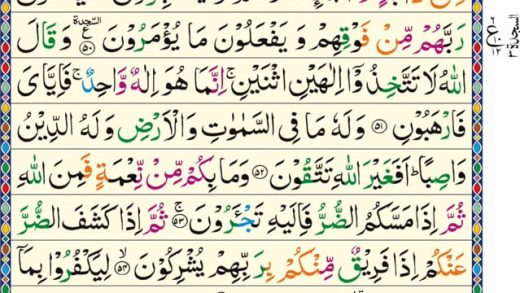 رَبَّهُمْ مِّنْ فَوْقِهِمْ وَ يَفْعَلُوْنَ مَا يُؤْمَرُوْنَ ۩ ﴿۵۰﴾ وَ قَالَ
اللّٰهُ لَا تَتَّخِذُوْۤا اِلٰهَيْنِ اثْنَيْنِ ۚ اِنَّمَا هُوَ اِلٰهٌ وَّاحِدٌ ۚ فَاِيَّايَ
فَارْهَبُوْنِ ﴿۵۱﴾ وَ لَهٗ مَا فِي السَّمٰوٰتِ وَالْاَرْضِ وَ لَهُ الدِّيْنُ
وَاصِبًا ؕ اَفَغَيْرَ اللّٰهِ تَتَّقُوْنَ ﴿۵۲﴾ وَمَا بِكُمْ مِّنْ نِّعْمَةٍ فَمِنَ اللّٰهِ
ثُمَّ اِذَا مَسَّكُمُ الضُّرُّ فَاِلَيْهِ تَجْـَٔرُوْنَ ۚ ﴿۵۳﴾ ثُمَّ اِذَا كَشَفَ الضُّرَّ
عَنْكُمْ اِذَا فَرِيْقٌ مِّنْكُمْ بِرَبِّهِمْ يُشْرِكُوْنَ ۙ ﴿۵۴﴾ لِيَكْفُرُوْا بِمَاۤ
السجدة ۳